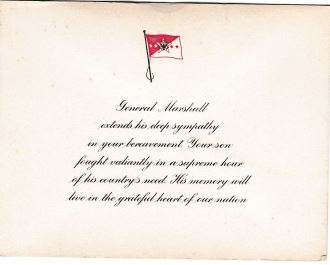 General Marshall
extends his deep sympathy
in your bereavement. Your son
fought valiantly in a supreme hour
of his country's need. His memory will
live in the grateful heart of our nation